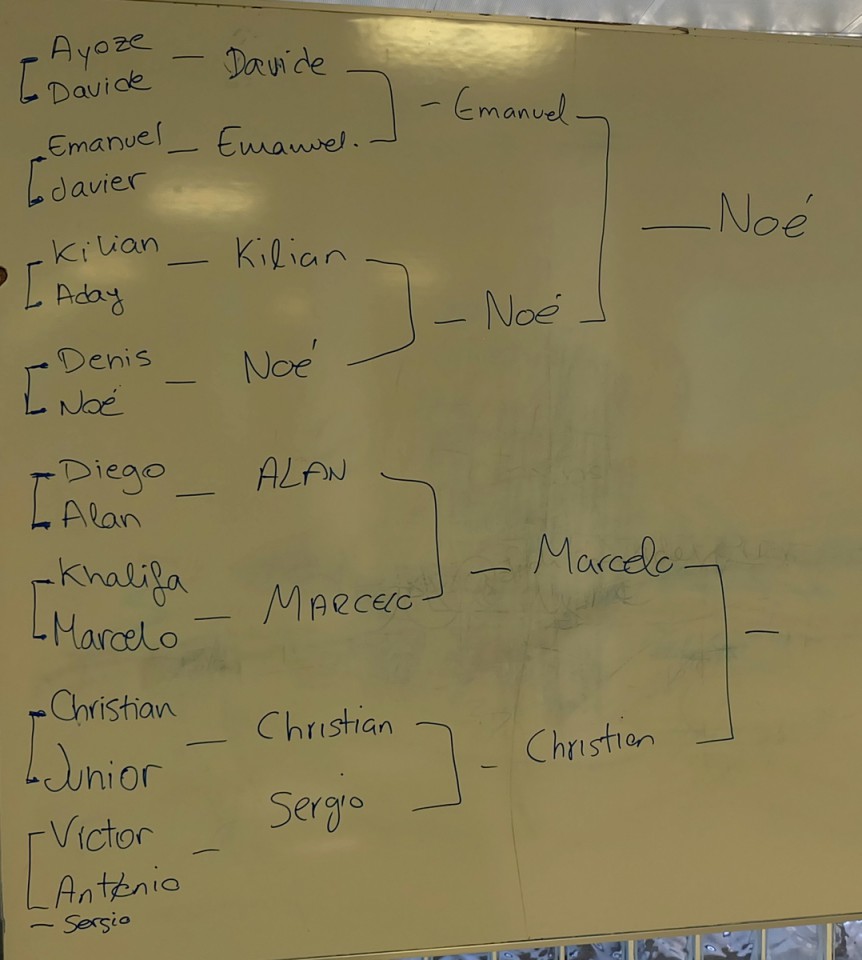 Ayoze
Davide
— Davide
Emanuel
Javier
— Emanuel.
— Emanuel
Kilian
Aday
— Kilian
Denis
Noé
— Noé
— Noé
— Noé
Diego
Alan
— ALAN
Khalifa
Marcelo
— MARCELO
— Marcelo
Christian
Junior
— Christian
Victor
Antonio
— Sergio
— Sergio
— Christian
—